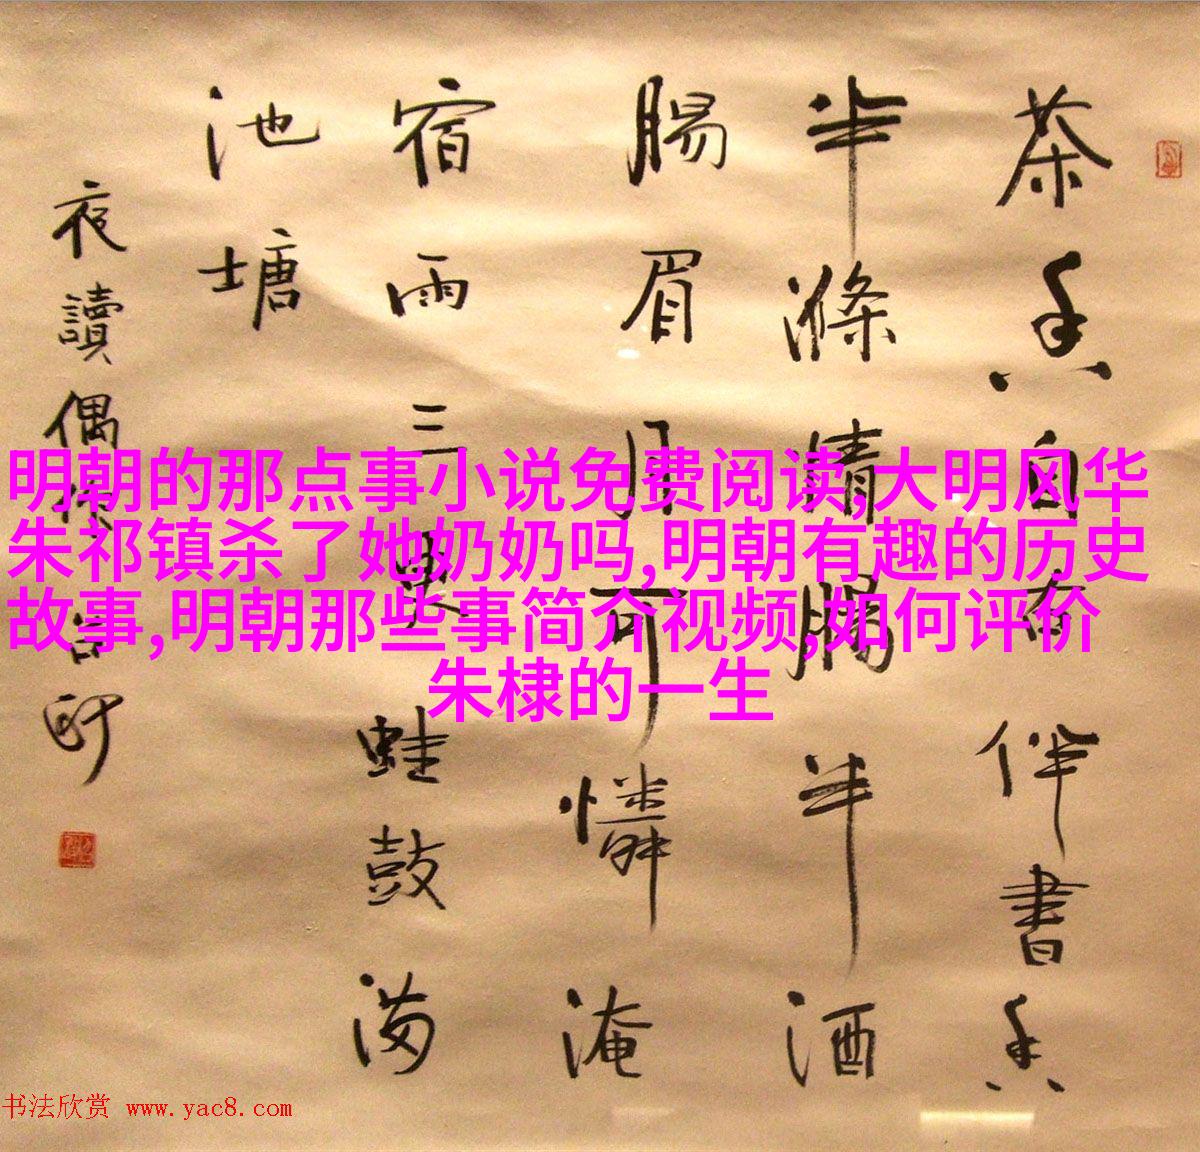 茶香自有伴書香
半滌情腸半酒
腸眉月可憐淹
宿雨三更蛙鼓满
池塘
夜讀偶
明朝的那点事小说免费阅读,大明风华
朱祁镇杀了她奶奶吗,明朝有趣的历史
故事,明朝那些事简介视频,如何评价
朱棣的一生
书法欣赏 www.yac8.com